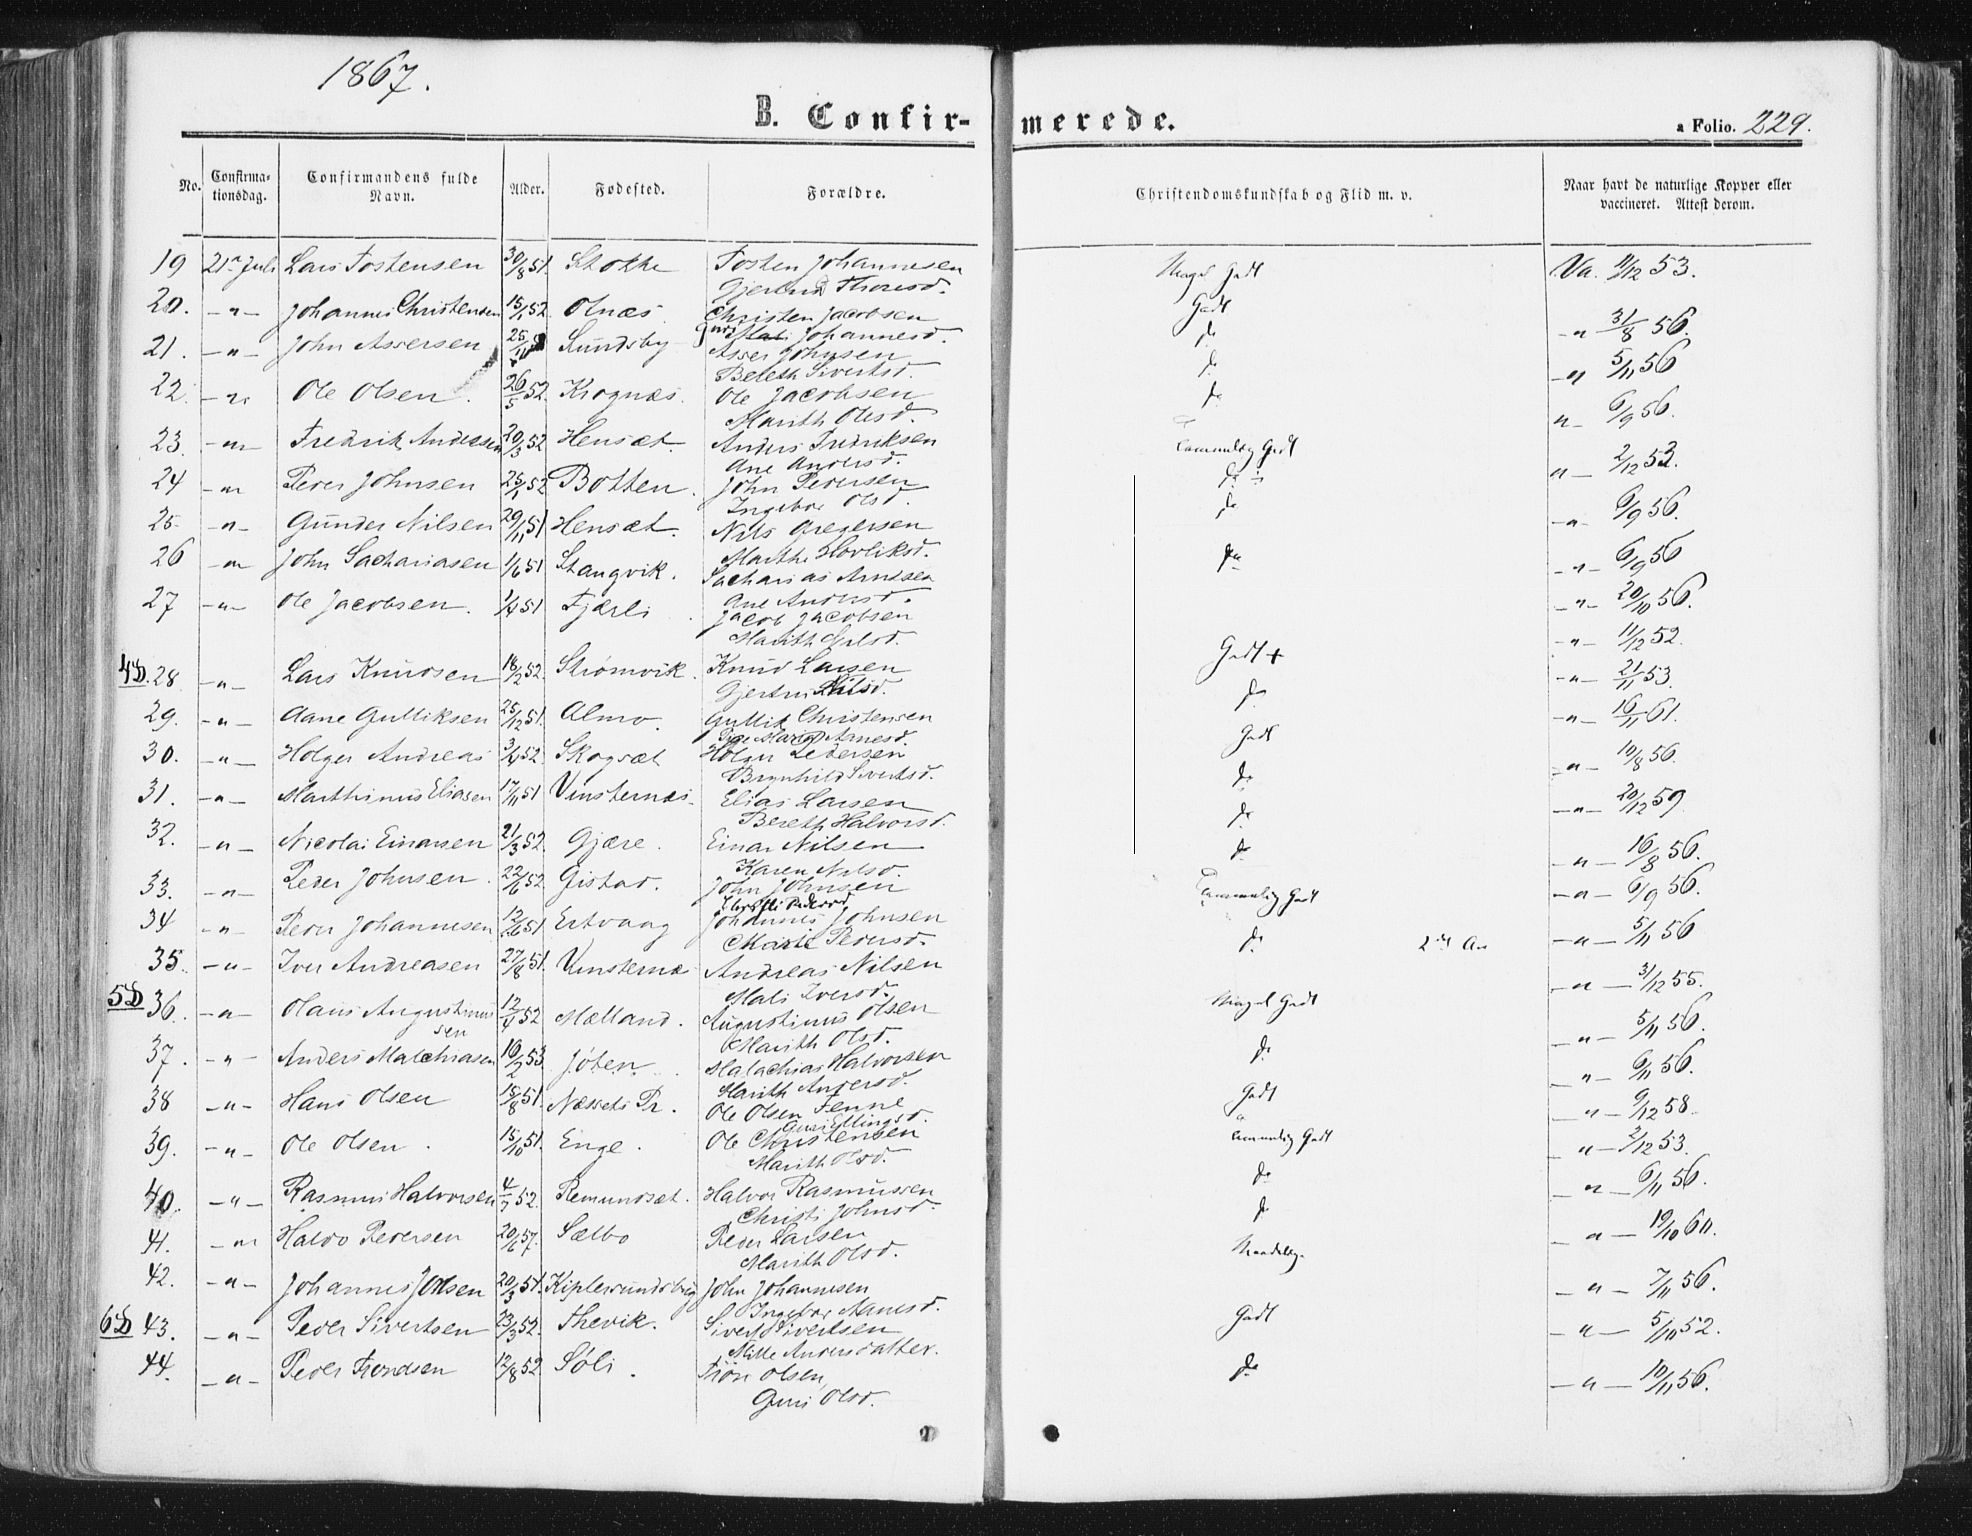 1867.
B. Confirmerede.
a Folio. 229.
No. Confirmationsdag. Confirmandens fulde Navn. Alder. Fødested. Forældre. Christendomskundskab og Flid m. v. Naar havt de naturlige Kopper eller vaccineret. Attest derom.
19 21 Juli Lars Tostensen 30/8 51. Stokke Tosten Johannesen Meget Godt Va. 11/12 53.
Gjertrud Thoresd.
20. -"- Johannes Christensen 15/1 52 Olnæs. Christen Jacobsen Godt -"- 31/8 56.
Johannesd.
21. -"- John Assersen Sundsby Asser Johnsen do -"- 5/11 56
Bereth Sivertsd.
22. -"- Ole Olsen. 26/5 52. Krognæs. Ole Jacobsen do -"- 6/9 56.
Marith Olsd.
23. -"- Fredrik Andersen 20/3 52 Hensæt. Anders Fredriksen Temmelig Godt -"- 2/12 53.
Ane Andersd.
24 -"- Peder Johnsen 25/1 52 Botten. John Pedersen do -"- 6/9 56.
Ingebor Olsd.
25. -"- Gunder Nilsen 29/11 51 Hensæt. Nils Gregersen do -"- 6/9 56
Marithe Hovliksd.
26 -"- John Sachariasen 1/6 51 Stangvik. Sacharias Arntsen do -"- 20/10 56.
Ane Andersd.
27 -"- Ole Jacobsen. 1/4 51 Fjærli. Jacob Jacobsen -"- 11/12 52.
Marith
4D. 28. -"- Lars Knudsen 18/2 52. Strømsvik. Knud Larsen Godt + -"- 21/11 53.
Gjertru Nilsd.
29. -"- Aane Gulliksen 25/12 51. Almo. Gullik Christensen do -"- 16/11 61.
Marie Arnesd.
30. -"- Holger Andreas 3/4 52. Skogsæt Holger Pedersen Godt -"- 10/8 56.
Brynhild Sivertsd.
31. -"- Marthinus Eliasen 17/11 51 Vinsternæs. Elias Larsen do -"- 20/12 59.
Bereth Halvorsd.
32. -"- Nicolai Einarsen 21/3 52. Gjære. Einar Nilsen do -"- 16/8 56.
Karen Nilsd.
33. -"- Peder Johnsen. 22/6 52 Gistad. John Johnsen do -"- 6/9 56.
Pedersd.
34 -"- Peder Johannesen 12/6 51 Ertvaag Johannes Johnsen Temmelig Godt -"- 5/11 56
Marie Pedersd.
35. -"- Iver Andreasen 27/8 51. Vinsternæs Andreas Nilsen do -"- 31/12 55.
Mali Iversd.
5D 36. -"- Olaus Augustinussen 12/4 52 Mælland. Augustinus Olsen Meget Godt -"- 5/11 56.
Marith Olsd.
37. -"- Anders Malachiasen 16/2 53. Jøten. Malachias Halvorsen do -"- 6/11 56.
Marith Andersd.
38 -"- Hans Olsen 15/8 51. Næssets Pr. Ole Olsen Fenne Godt -"- 9/12 58.
Guri Ellingsd.
39. -"- Ole Olsen. 15/10 51. Enge. Ole Christensen Temmelig Godt -"- 2/12 53.
Marith Olsd.
40. -"- Rasmus Halvorsen 4/7 52. Remundsæt. Halvor Rasmussen do -"- 6/11 56.
Christi Johnsd.
41. -"- Haldo Pedersen 20/6 Sælbo Peder Larsen do -"- 19/10 60.
Marith Olsd.
42. -"- Johannes Johnsen 20/3 51. Kiplesundsbug John Johannesen Maadelig. -"- 7/11 56.
Ingebor Aanesd.
6D 43. -"- Peder Sivertsen 23/3 52. Thevik. Sivert Sivertsen Godt -"- 5/10 52.
Mille Andersdatter.
44. -"- Peder Trondsen 12/8 52 Søli. Trond Olsen, do -"- 10/11 56.
Guri Olsd.